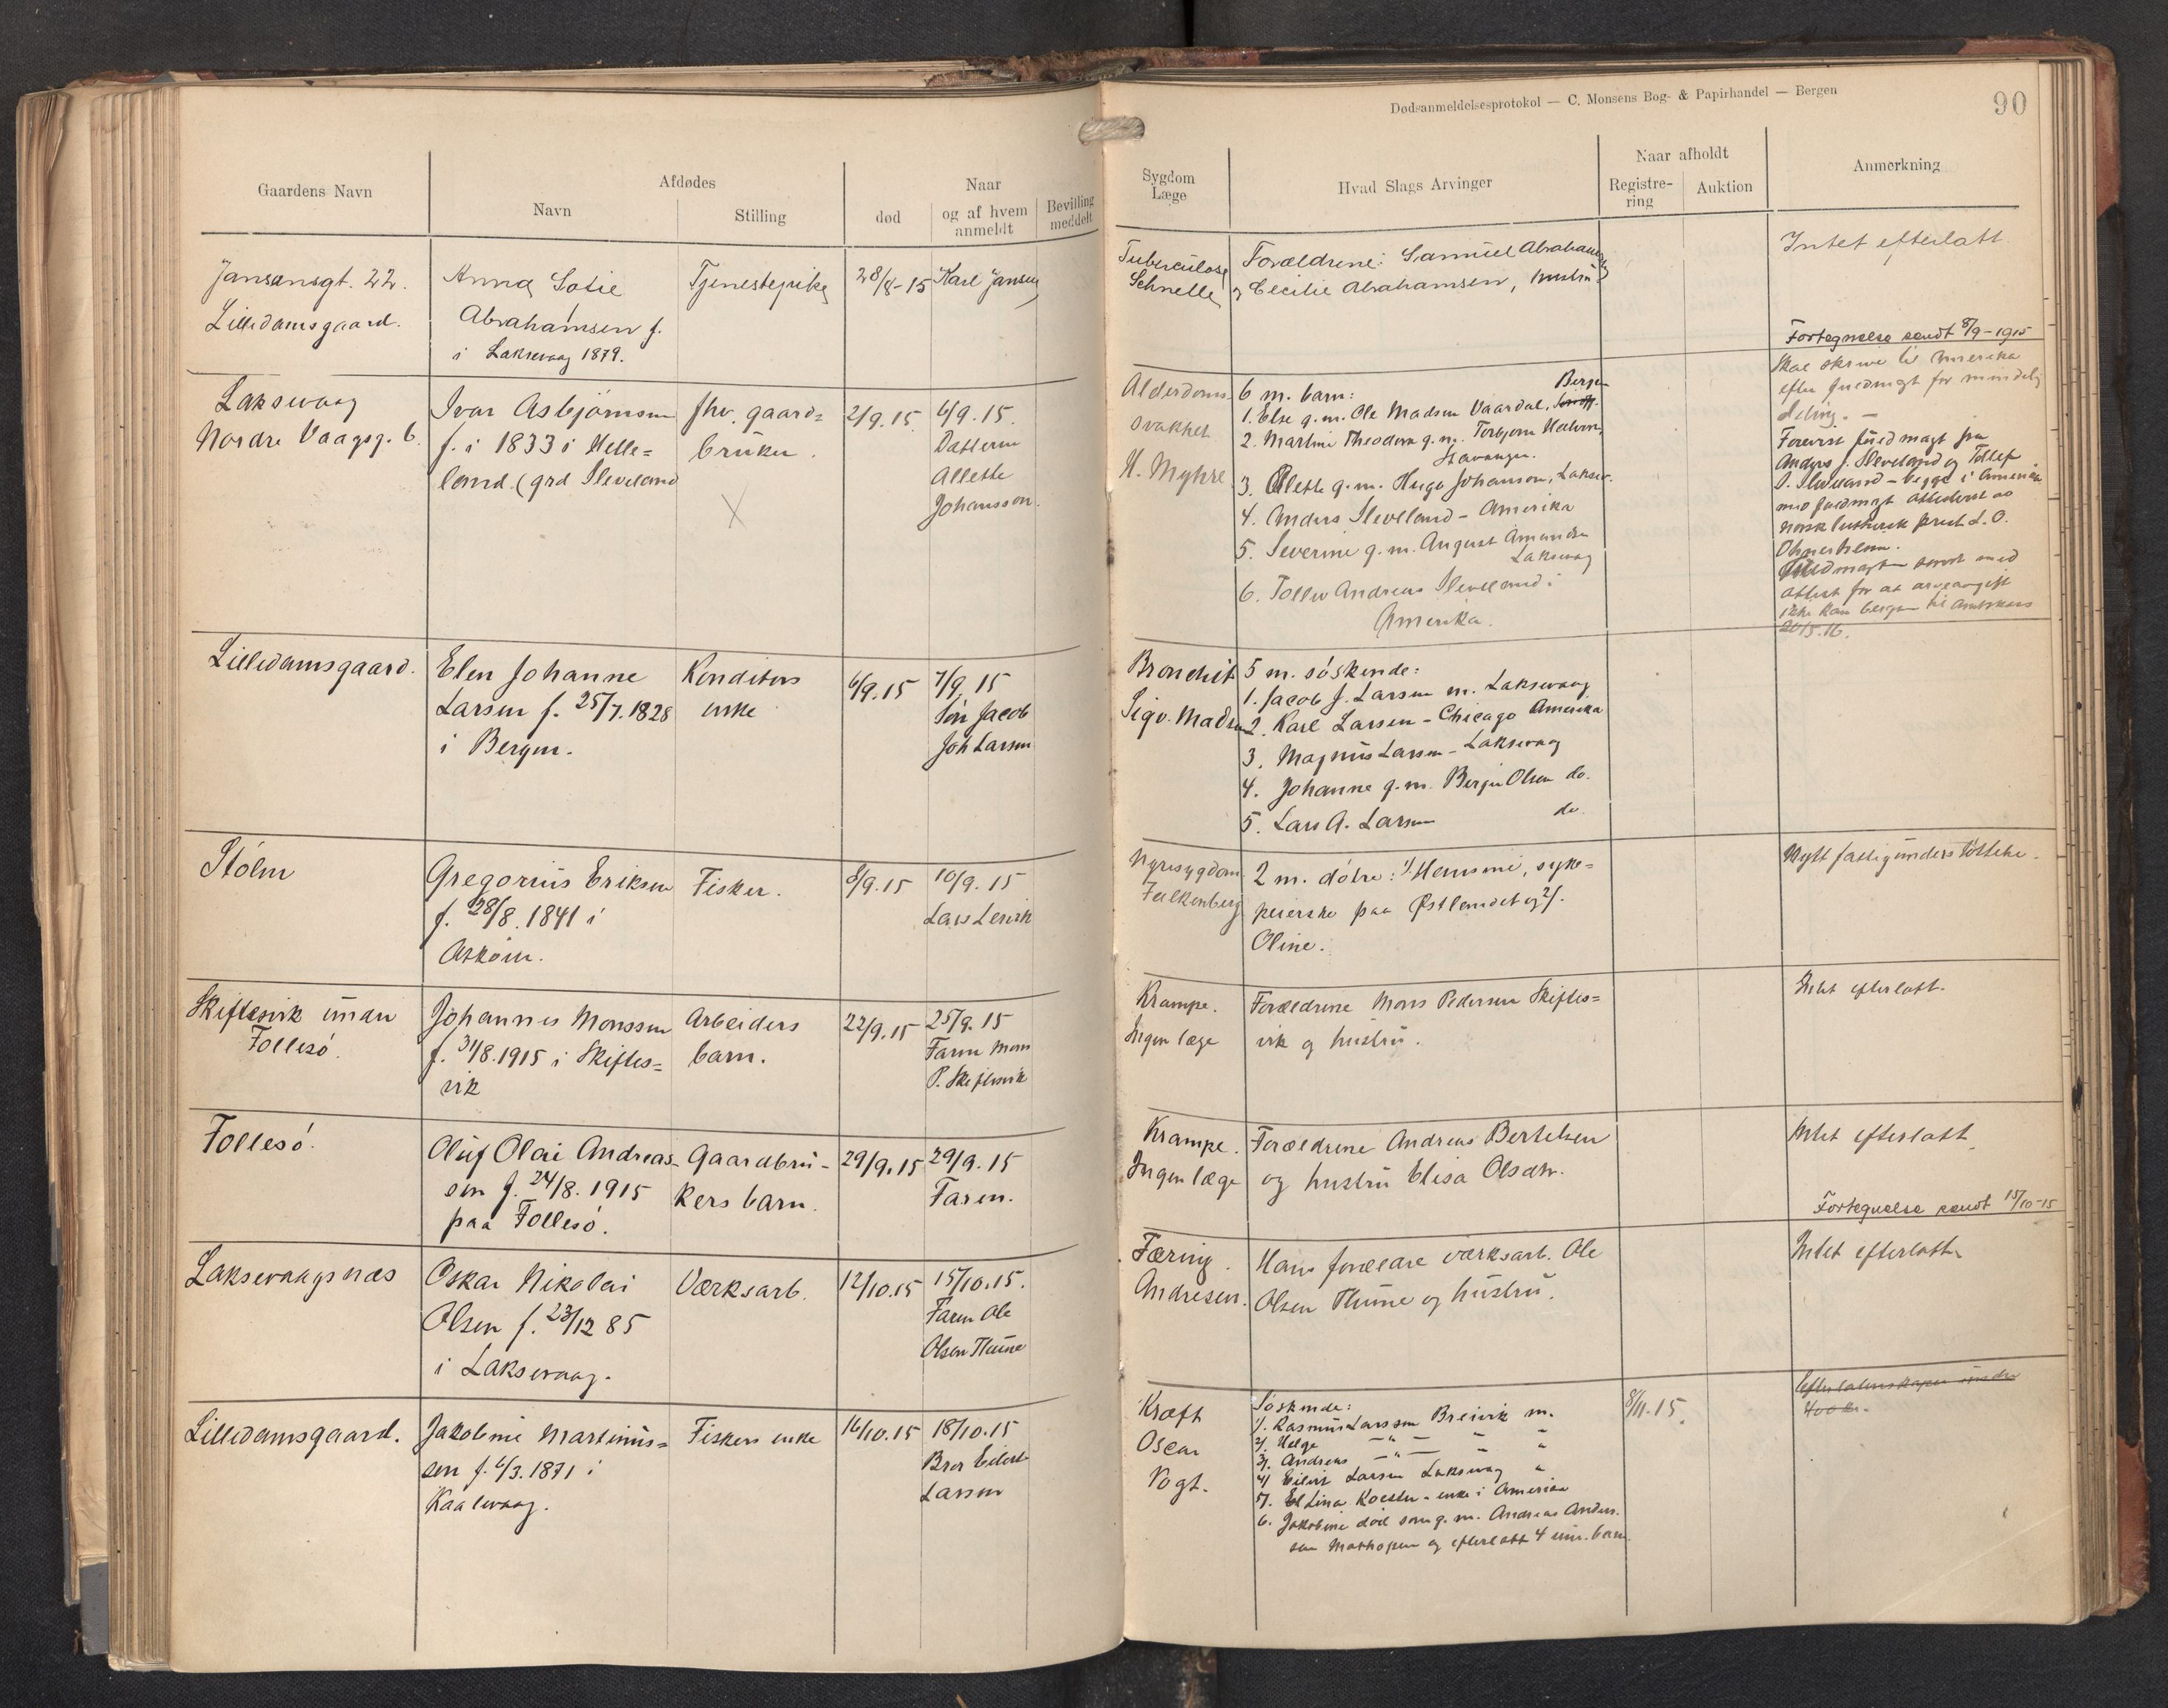 Dødsanmeldelsesprotokol — C. Monsens Bog- & Papirhandel — Bergen
90
Gaardens Navn
Afdødes
Navn
Stilling
død
Naar
og af hvem
anmeldt
Bevilling
meddelt
Sygdom
Læge
Hvad Slags Arvinger
Naar afholdt
Registre-
ring
Auktion
Anmerkning
Jansensgt. 22.
Lilledamsgaard.
Anna Sofie
Abrahamsen f.
i Laksevaag 1879.
Tjenestepike
28/8-15
Karl Jansen
Tuberculose
Schnelle
Forældrene: Samuel Abrahamsen
og Cecilie Abrahamsen, hustru
Intet efterlatt
Fortegnelse sendt 8/9-1915
Laksevaag
Nordre Vaagsg. 6.
Ivar Asbjørnsen
f. i 1833 i Helle=
land (grd Sleveland
fhv. gaard=
bruker.
2/9.15.
6/9.15.
Datteren
Allette
Johansson.
Alderdoms
svakhet
H. Myhre
6 m. barn:
1. Else g.m. Ole Madsen Vaardal, Bergen
2. Martine Theodora g.m. Torbjørn
Stavanger.
3. Alette g.m. Hugo Johanson, Laksev.
4. Anders Sleveland - Amerika
5. Severine g.m. August Amundsen
Laksevaag
6. Tollev Andreas Sleveland i
Amerika.
Skal skrive til Amerika
efter fuldmagt for mindelig
deling. —
Forevist fuldmagt fra
Anders J. Sleveland og Tollef
A. Sleveland - begge i Amerika
med fuldmagt attesteret av
norsk luthersk prest L. O.
Fuldmagten sendt med
attest for at arveavgift
ikke kan beregnes til Amtskass
20/5.16.
Lilledamsgaard.
Elen Johanne
Larsen f. 25/7.1828
i Bergen.
Konditors
enke
6/9.15
7/9.15
Søn Jacob
Joh Larsen
Bronchit
Sigv. Madsen
5 m. søskende:
1. Jacob J. Larsen m. Laksevaag
2. Karl Larsen - Chicago Amerika
3. Magnus Larsen - Laksevaag
4. Johanne g.m. Berge Olsen do.
5. Lars A. Larsen do.
Stolm
Gregorius Eriksen
f. 28/8.1841 i
Askøen.
Fisker.
8/9.15
10/9.15
Lars Lervik
Nyresygdom
Falkenberg
2 m. døtre: 1/ Hansine, syke=
pleierske paa Østlandet og 2/.
Oline.
Nytt fattigunderstøttelse.
Skiftesvik innan
Follesø.
Johannes Monssen
f. 31/8.1915 i Skiftes=
vik
Arbeiders
barn.
22/9.15
25/9.15
Faren Mons
P. Skiftesvik
Krampe.
Ingen læge
Forældrene Mons Pedersen Skiftes=
vik og hustru.
Intet efterlatt.
Follesø.
Oluf Olai Andreas-
sen f. 24/8.1915
paa Follesø.
Gaardbru-
kers barn.
29/9.15
29/9.15
Faren.
Krampe.
Ingen læge
Forældrene Andreas Bertelsen
og hustru Elisa Olsdtr.
Intet efterlatt
Fortegnelse sendt 15/10-15
Laksevaagsnæs
Oskar Nikolai
Olsen f. 23/12 85
i Laksevaag.
Værksarb.
12/10.15
15/10.15.
Faren Ole
Olsen Thune
Tæring.
Andresen.
Hans forældre værksarb. Ole
Olsen Thune og hustru.
Intet efterlatt.
Lilledamsgaard.
Jakobine Martinus=
sen f. 6/3.1871 i
Kaalevaag.
Fiskers enke
16/10.15
18/10.15
Bror Eilert
Larsen
Kræft
Oscar
Vogt.
Søskende:
1/. Rasmus Larssen Breivik m.
2/. Helge — " — — "
3/. Andreas — " — — "
4/ Eilert Larsen Laksevaag "
5/. Elina Koester - enke i Amerika
6. Jakobine død som g.m. Andreas Anders.
sen Mathopen og efterlatt 4 um. barn.
8/11.15.
Efterlatenskaper under
400 kr.